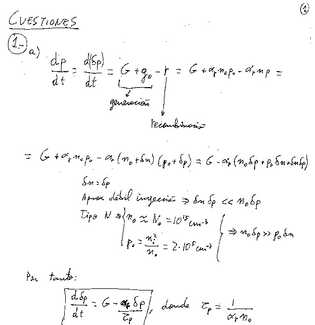 CUESTIONES
①
1- a)
dp/dt = d(δp)/dt = G + g₀ - r = G + αᵣ n₀p₀ - αᵣ n p =
generación
recombinación
= G + αᵣ n₀p₀ - αᵣ (n₀+δn)(p₀+δp) = G - αᵣ (n₀δp + p₀δn + δnδp)
δn = δp
Aprox débil inyección ⇒ δn δp << n₀δp
Tipo N ⇒ n₀ ≈ N₀ = 10¹⁵ cm⁻³
p₀ = nᵢ²/n₀ = 2·10⁵ cm⁻³
⇒ n₀δp >> p₀δn
Por tanto:
dδp/dt = G - δp/τₚ, donde τₚ = 1/αᵣn₀